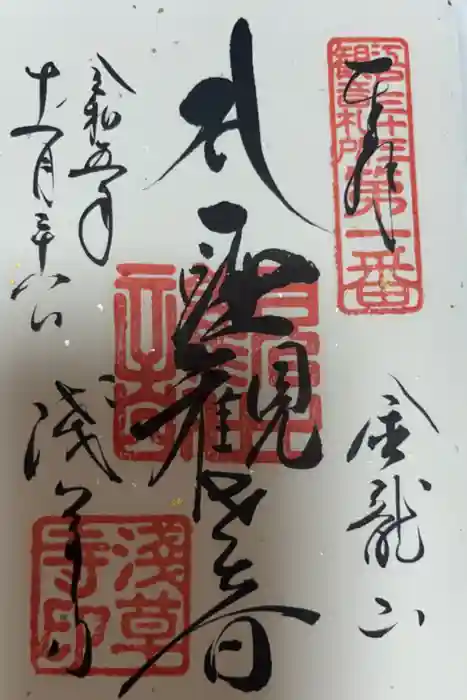 奉拝
江戸三十三所
観音札所第一番
金龍山
聖観世音
浅草寺
令和五年
十一月二十八日
浅草
寺印